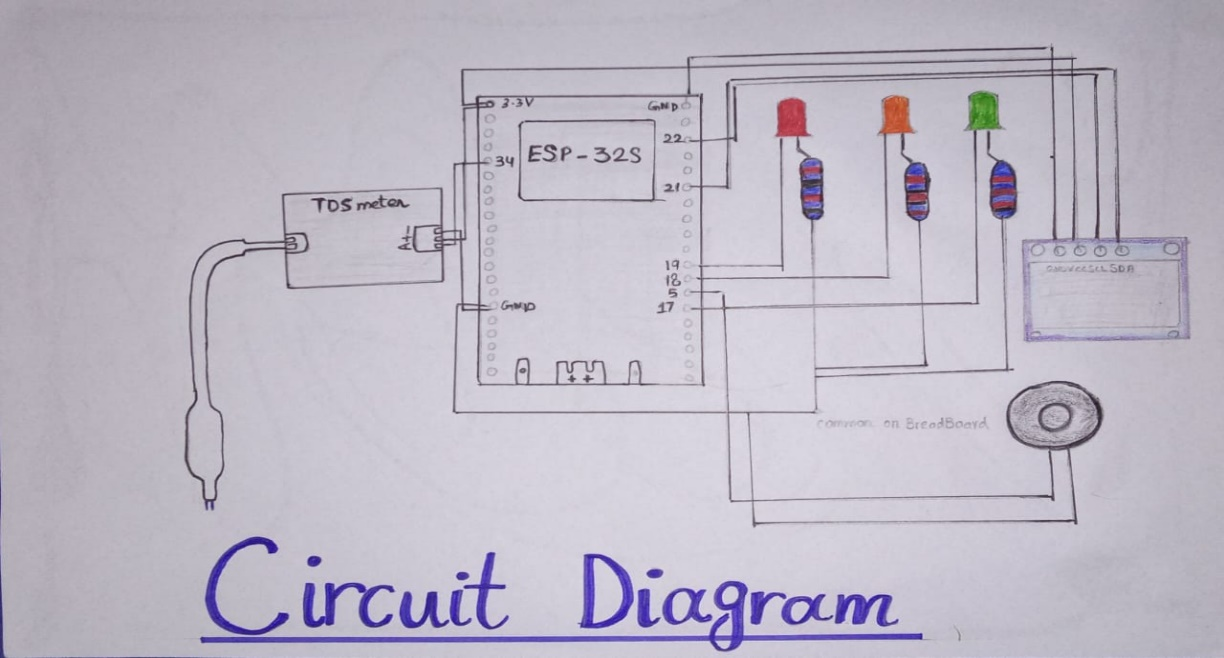 3.3V
GND
22
34
ESP-32S
21
TDS meter
A + -
19
18
5
17
GND
GND VCC SCL SDA
common on BreadBoard
Circuit Diagram